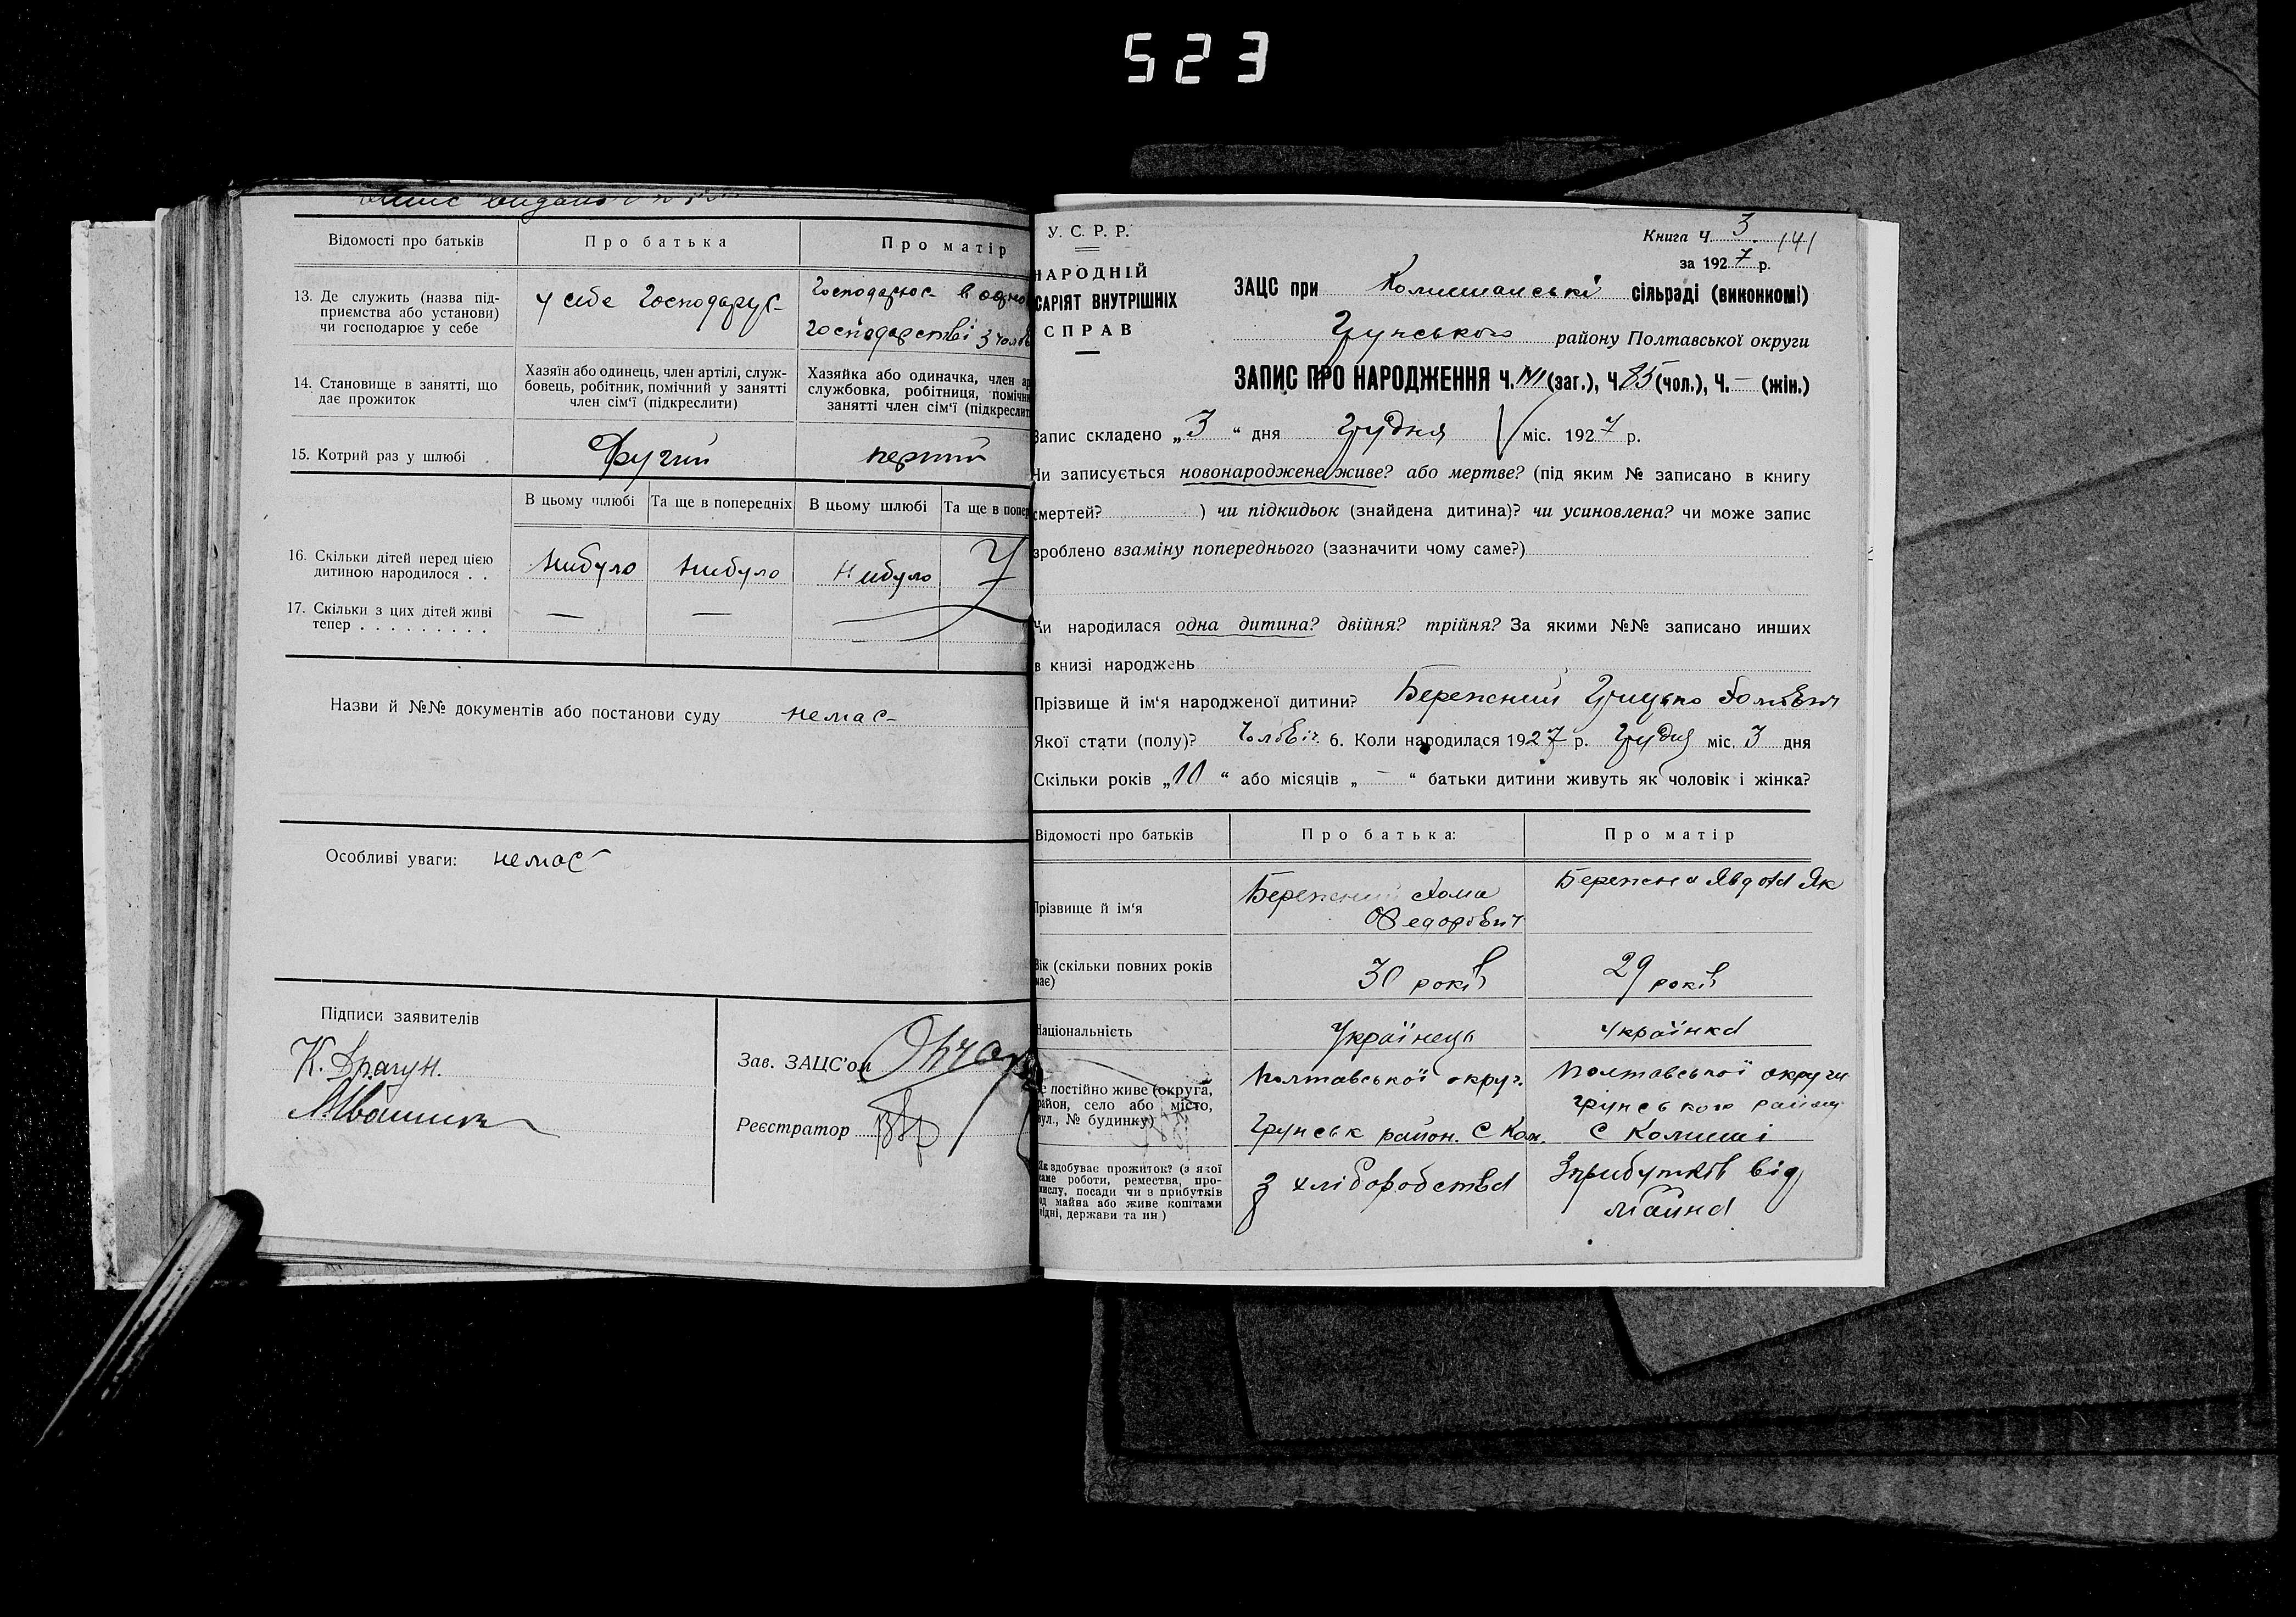 523
видано
Відомості про батьків
Про батька
Про матір
13. Де служить (назва під-
приємства або установи)
чи господарює у себе
у себе Господарує
Господарює в одно
Господарстві з чолов
14. Становище в занятті, що
дає прожиток
Хазяїн або одинець, член артілі, служ-
бовець, робітник, помічний у занятті
член сім'ї (підкреслити)
Хазяйка або одиначка, член ар
службовка, робітниця, помічн
занятті член сім'ї (підкреслит
15. Котрий раз у шлюбі
другий
перший
В цьому шлюбі
Та ще в попередніх
В цьому шлюбі
Та ще в попер
16. Скільки дітей перед цією
дитиною народилося . .
Нибуло
Нибуло
Нибуло
17. Скільки з цих дітей живі
тепер . . . . . . . . .
—
—
Назви й №№ документів або постанови суду немає
Особливі уваги: немає
Підписи заявителів
К. Драгун.
Зав. ЗАЦС'ом
Реєстратор
У. С. Р. Р.
НАРОДНІЙ
САРІЯТ ВНУТРІШНІХ
СПРАВ
Книга Ч. 3. 141
за 1927 р.
ЗАЦС при Комишанські сільраді (виконкомі)
Грунського району Полтавської округи
ЗАПИС ПРО НАРОДЖЕННЯ Ч. 141 (заг.), Ч. 85 (чол.), Ч. — (жін.)
Запис складено „3“ дня Грудня міс. 1927 р.
Чи записується новонароджене живе? або мертве? (під яким № записано в книгу
смертей? ) чи підкидьок (знайдена дитина)? чи усиновлена? чи може запис
зроблено взаміну попереднього (зазначити чому саме?)
Чи народилася одна дитина? двійня? трійня? За якими №№ записано инших
в книзі народжень
Прізвище й ім'я народженої дитини? Бережний Грицько Хомович
Якої стати (полу)? Чоловіч. 6. Коли народилася 1927 р. Грудня міс. 3 дня
Скільки років „10“ або місяців „—“ батьки дитини живуть як чоловік і жінка?
Відомості про батьків
Про батька:
Про матір
Прізвище й ім'я
Бережний Хома
Федорович
Бережна Явдоха Як
Вік (скільки повних років
має)
30 років
29 років
Національність
Українець
Українка
е постійно живе (округа,
район, село або місто,
вул., № будинку)
Полтавської округ.
Грунськ район. С Ком.
Полтавської округи
Грунського району
С Комиші
Як здобуває прожиток? (з якої
саме роботи, ремества, про-
мислу, посади чи з прибутків
од майна або живе коштами
рідні, держави та ин)
З хліборобства
З прибутків від
майна